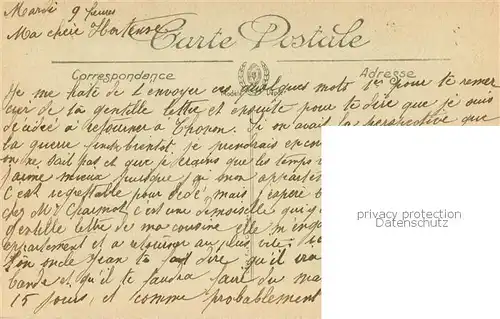 Mardi 9 heures
Ma chère Hortense
Carte Postale
Correspondance
Adresse
Je me hate de t'envoyer ces quelques mots pour te remer
cier de ta gentille lettre et ensuite pour te dire que je suis
décidée à retourner à Thonon. Si on avait la perspective que
la guerre finit bientot je prendrais
on ne sait pas et que je crains que les temps
J'aime mieux puisque j'ai mon apparte
C'est regrettable pour Dédé mais j'espère
chez Mr Charmot c'est une demoiselle qui
gentille lettre de ma cousine elle m'
appartement et a retourner au plus vite.
Ton oncle Jean t'a fait dire qu'il
et qu'il te faudra faire du
15 jours, et comme probablement
privacy protection
Datenschutz